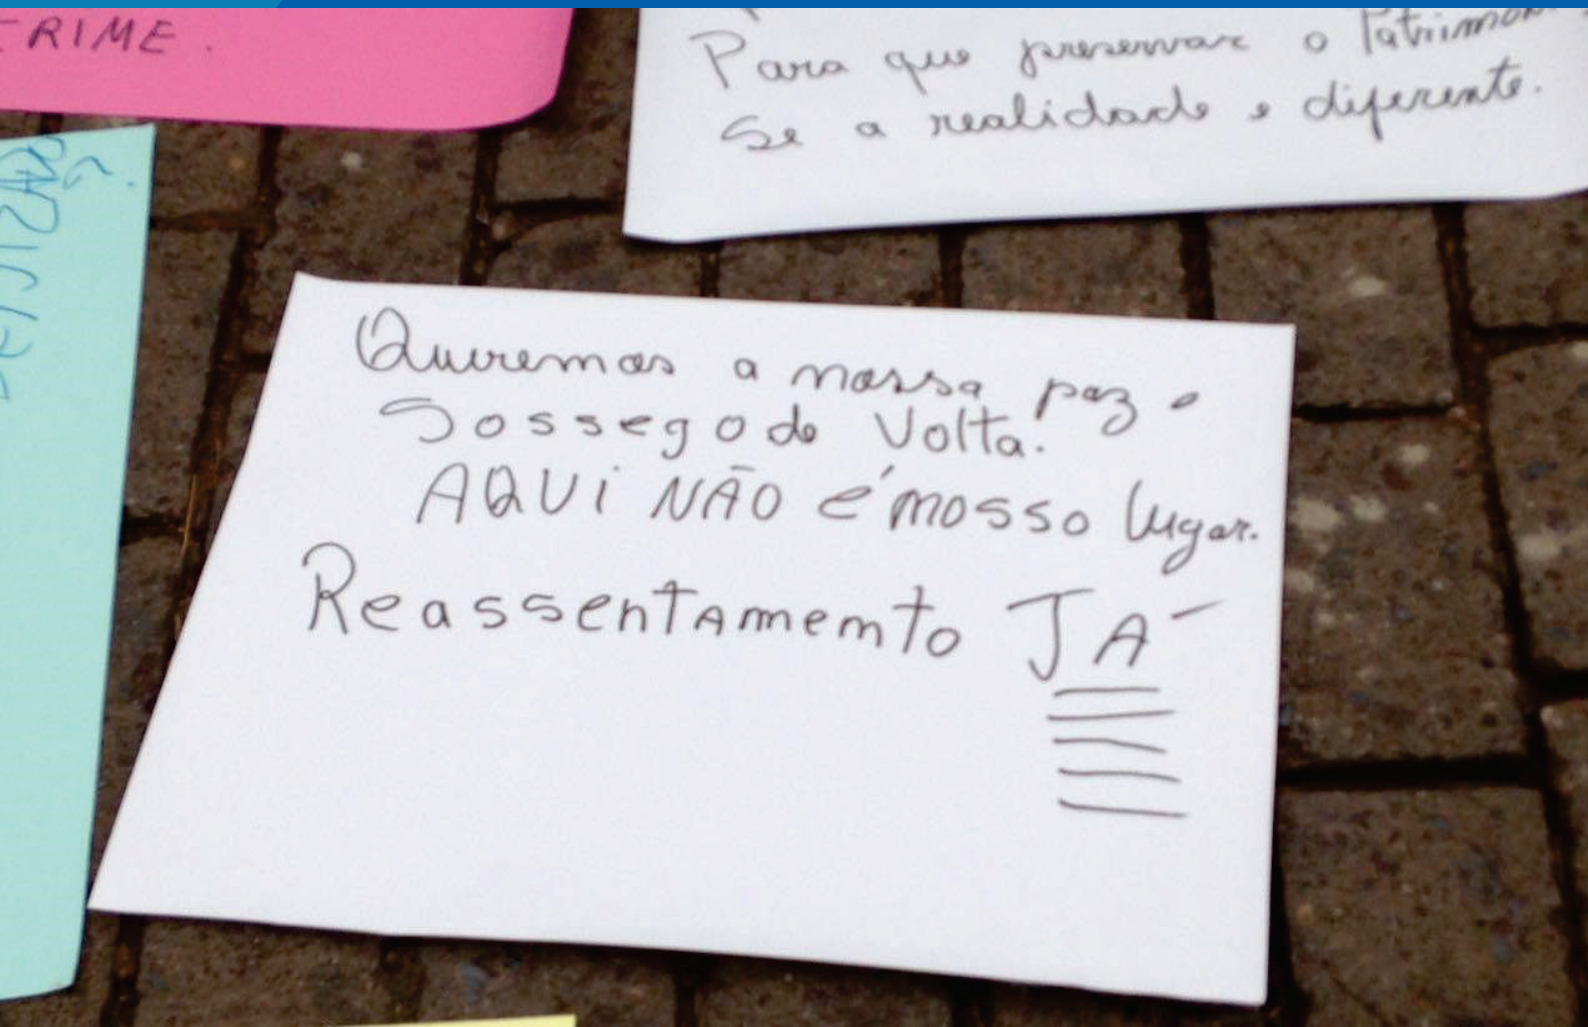 CRIME.
Para que preservar o
Se a realidade e diferente.
Queremos a nossa paz e
Sossego de Volta!
AQUi NÃO é nosso lugar.
Reassentamento JÁ